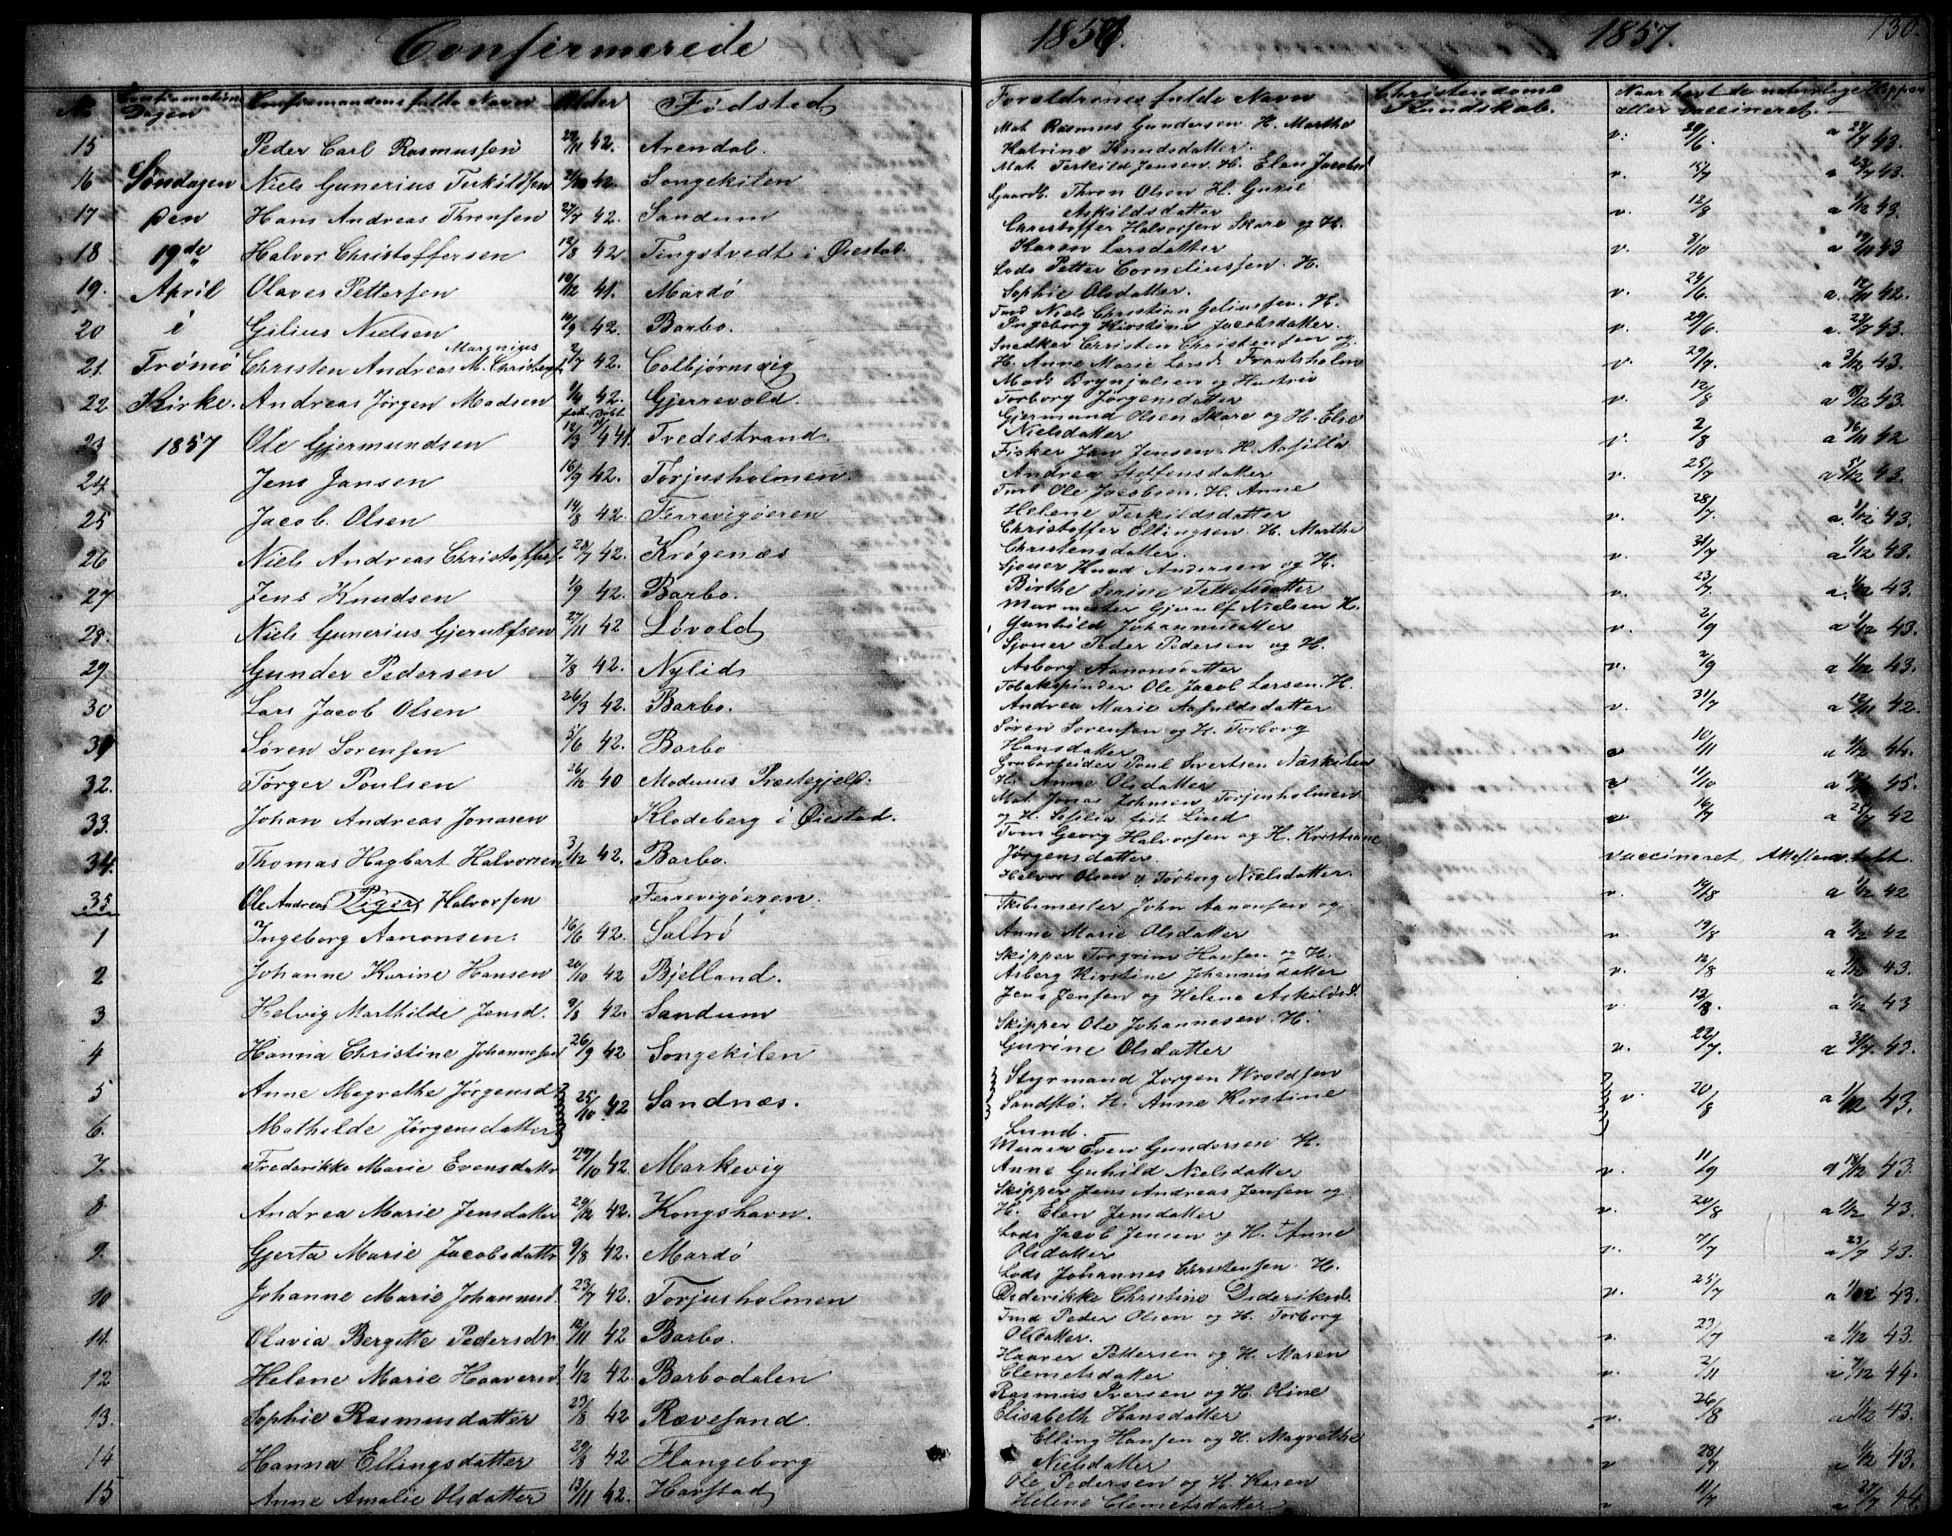 Confirmerede 1857. 1857. 130.
No Confirmations Dagen Confirmandens fulde Navn Alder Fødsted Forældrenes fulde Navn Christendoms Kundskab. Naar havt de naturlige Kopper eller vaccineret.
15 Peder Carl Rasmussen 42. Arendal. Mat. Rasmus Gundersen H. Marthe Katrine Knudsdatter. v. 29/6. a 43.
16 Søndagen Niels Gunerius Terkildsen 42. Songekilen Mat. Terkild Jensen. H. Elen Jacobsd v. 15/7 a 43.
17 Den Hans Andreas Thronsen 27/7 42. Sandum Gaardb. Thron Olsen H. Gurie Askildsdatter v. 12/8 a 1/12 43.
18 19de Halvor Christoffersen 12/8 42 Tingstvedt i Øiestad Christoffer Halvorsen Skare og H. Karen Larsdatter v. 3/10 a 43
19. April Olaves Pettersen 10/12 41. Mardø Lods Petter Corneliussen. H. Sophie Olsdatter. v. 24/6. a. 42.
20 i Gilius Nielsen 10/9 42. Barbo. Tmd Niels Christian Geliussen. H. Ingeborg Kirstine Jacobsdatter. v. 29/6. a. 43.
21. Tromø Christen Andreas M. Christens. Magnius 2/7 42. Colbjørnsvig Snedker Christen Christensen og H. Anne Marie Larsd. Frantsholm v. 29/7. a 3/12 43.
22. Kirke. Andreas Jørgen Madsen 1/4 42. Gjerrevold. Mads Brynjulsen og Hustrue Torborg Jørgensdatter v. 12/8 a 43.
23 1857 Ole Gjermundsen 41. Tvedestrand. Gjermund Olsen Skare og H. Else Nielsdatter v. 2/8 a 42
24. Jens Jansen 16/9 42. Torjusholmen. Fisker Jan Jensen. H. Andrea Steffensdatter v. 25/7 a 5/12 43.
25 Jacob. Olsen 14/8 42. Terrevigøeren Tmd Ole Jacobsen. H. Anne Helene Terkildsdatter v. 28/7. a. 1/12 43.
26 Niels Andreas Christoffers. 29/7 42. Krøgenæs Christoffer Ellingsen H. Marthe Christensdatter. v. 31/7 a 1/12 43.
27 Jens Knudsen 1/9 42. Barbo. Sjouer Knud Andersen og H. Birthe Serine Tellefsdatter v. 23/7. a. 1/12 43.
28. Niels Gunerius Gjerulfsen 27/11 42 Løvold Murmester Gjerulf Nielsen H. Gunhild Johannisdatter v. 2/9 a 1/12 43.
29 Gunder Pedersen 7/8 42. Nylid Sjouer Peder Pedersen og H. Asborg Aanonsdatter v. 2/9 a 1/12 43.
30 Lars Jacob Olsen 26/3 42. Barbo. Tobakspinder Ole Jacob Larsen. H. Andrea Marie v. 31/7 a 12/11 42.
31 Søren Sørensen 5/6 42. Barbo Søren Sørensen og H. Torborg Hansdatter v 10/11 a 1/12 44.
32. Tørger Poulsen 26/12 40 Modums Præstegjeld. Grubarbeider Poul Ivertsen Næskilen H. Anne Olsdatter v 11/10 a 45.
33. Johan Andreas Jonasen Klodeberg i Øiestad. Mat. Jonas Johnsen Torjusholmen og H. Sofilia født Lind v 16/7 a 42
34. Thomas Hagbart Halvorsen 3/12 42. Barbo. Tøm Georg Halvorsen og H. Kristiane Jørgensdatter vaccineret, Attesten tabt.
35 Ole Andreas Piger Halvorsen Terrevigøeren. Halvor Olsen & Torborg Nielsdatter. v. 14/8 a 1/2 42
1 Ingeborg Aanonsen. 16/6 42. Saltrø Skibmester John Aanonsen og Anne Marie Olsdatter v. 19/8 a 1/12 42
2 Johanne Karine Hansen 26/10 42 Bjelland. Skipper Torgrim Hansen og H. Asberg Kirstine Johannisdatter v. 12/8 a 1/12 43.
3 Helvig Marthilde Jensd. 9/8 42. Sandum Jens Jensen og Helene Askildsd. v 12/8. a 1/12 43
4 Hanna Christine Johannesen 26/9 42 Songekilen Skipper Ole Johannesen. H. Gurine Olsdatter v. 22/7. a 43.
5 Anne Megrethe Jørgensd. 25/10 42 Sandnæs. Styrmand Jørgen Wroldsen Sandstø. H. Anne Kirstine Lund. v. 20/8 a 1/12 43.
6. Mathilde Jørgensdatter
7 Frederikke Marie Evensdattr 29/10 42. Markevig Even Gundersen H. Anne Guhild Nielsdatter v. 11/9 a 43.
8 Andrea Marie Jensdatter 29/12 42. Kongshavn. Skipper Jens Andreas Jensen og H. Elen Jensdatter v. 20/8 a 1/12 43.
9. Gjerta Marie Jacobsdattr 9/8 42. Mardø Lods Jacob Jensen og H. Anne Olsdatter v. 7/7 a 23/7 43.
10 Johanne Marie Johannesd. 23/7 42. Torjusholmen Lods Johannes Christensen H. Diderikke Christine Dideriksd. v. 25/7 a 1/12 43.
11. Olavia Bergitte Pedersdtr. 12/11 42 Barbo. Tmd Peder Olsen og H. Torborg Olsdatter. v. 23/7 a 1/12 43.
12 Helene Marie Haaversd. 1/12 42. Barbodalen Haaver Pettersen og H. Maren Clemetsdatter v. 2/11 a 7/12 44.
13. Sophie Rasmusdatter 23/8 42 Rævesand. Rasmus Iversen og H. Oline Elisabeth Hansdatter v. 26/8 a 1/12 43.
14 Hanna Ellingsdatter 29/8 42 Flangeborg Elling Hansen og H. Magrethe Nielsdatter v 28/7 a 1/12 43.
15 Anne Amalie Olsdatter 13/11 42. Havstad Ole Pedersen og H. Karen Helene Clemetsdatter v 11/7 a 27/7 44.